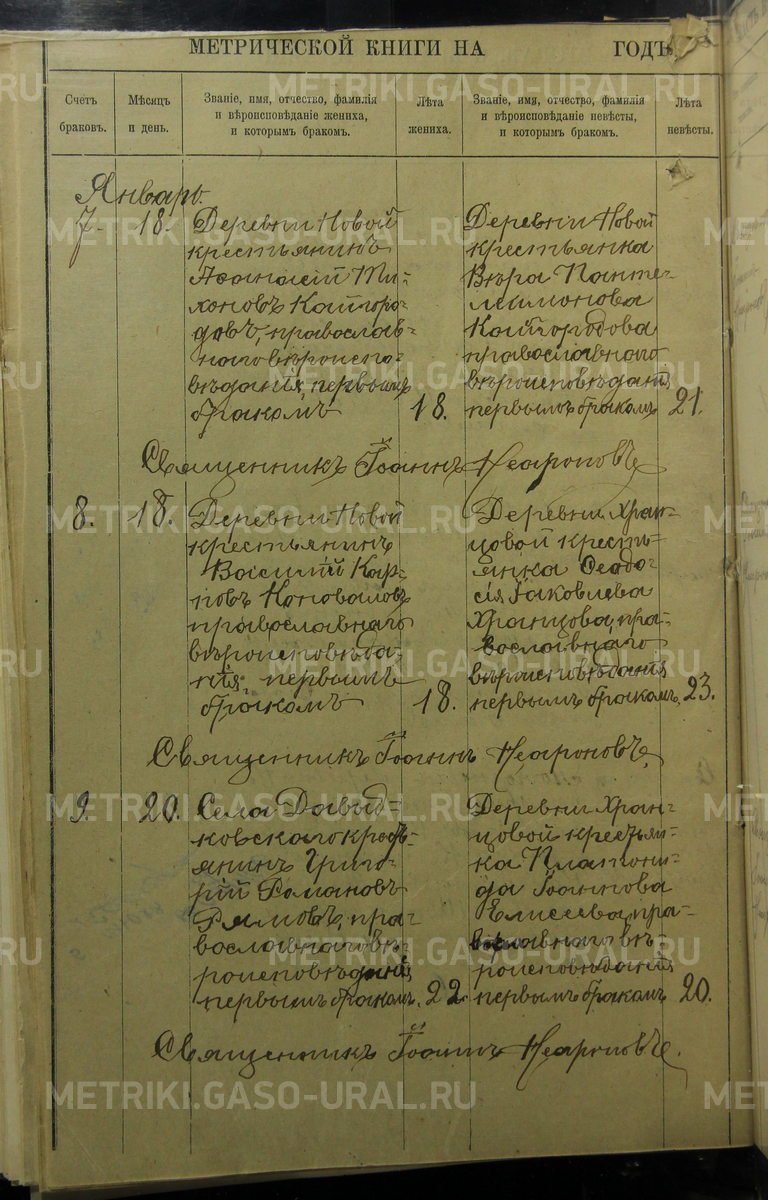 МЕТРИЧЕСКОЙ КНИГИ НА ГОДЪ
Счетъ браковъ.
Мѣсяцъ и день.
Званіе, имя, отчество, фамилія
и вѣроисповѣданіе жениха,
и которымъ бракомъ.
Лѣта жениха.
Званіе, имя, отчество, фамилія
и вѣроисповѣданіе невѣсты,
и которымъ бракомъ.
Лѣта невѣсты.
Январь.
7. 18.
Деревни Новой
крестьянинъ
Аѳанасій Ти-
хоновъ Кайгоро-
довъ, православ-
наго вѣроиспо-
вѣданія, первымъ
бракомъ
18.
Деревни Новой
крестьянка
Вѣра Панте-
леимонова
Кайгородова
православнаго
вѣроисповѣданія
первымъ бракомъ
21.
Священникъ Іоаннъ
8. 18.
Деревни Новой
крестьянинъ
Василій Кар-
повъ Коноваловъ
православнаго
вѣроисповѣда-
нія, первымъ
бракомъ
18.
Деревни Хран-
цовой кресть-
янка Ѳеодо-
сія Іаковлева
Хранцова, пра-
вославнаго
вѣроисповѣданія
первымъ бракомъ,
23.
Священникъ Іоаннъ
9. 20.
Села Давыд-
ковскаго кресть-
янинъ Григо-
рій Романовъ
Рямовъ, пра-
вославнаго вѣ-
роисповѣданія
первымъ бракомъ.
22.
Деревни Хран-
цовой крестьян-
ка Платони-
да Іоаннова
Елисеева, пра-
вославнаго вѣ-
роисповѣданія
первымъ бракомъ
20.
Священникъ Іоаннъ
METRIKI.GASO-URAL.RU